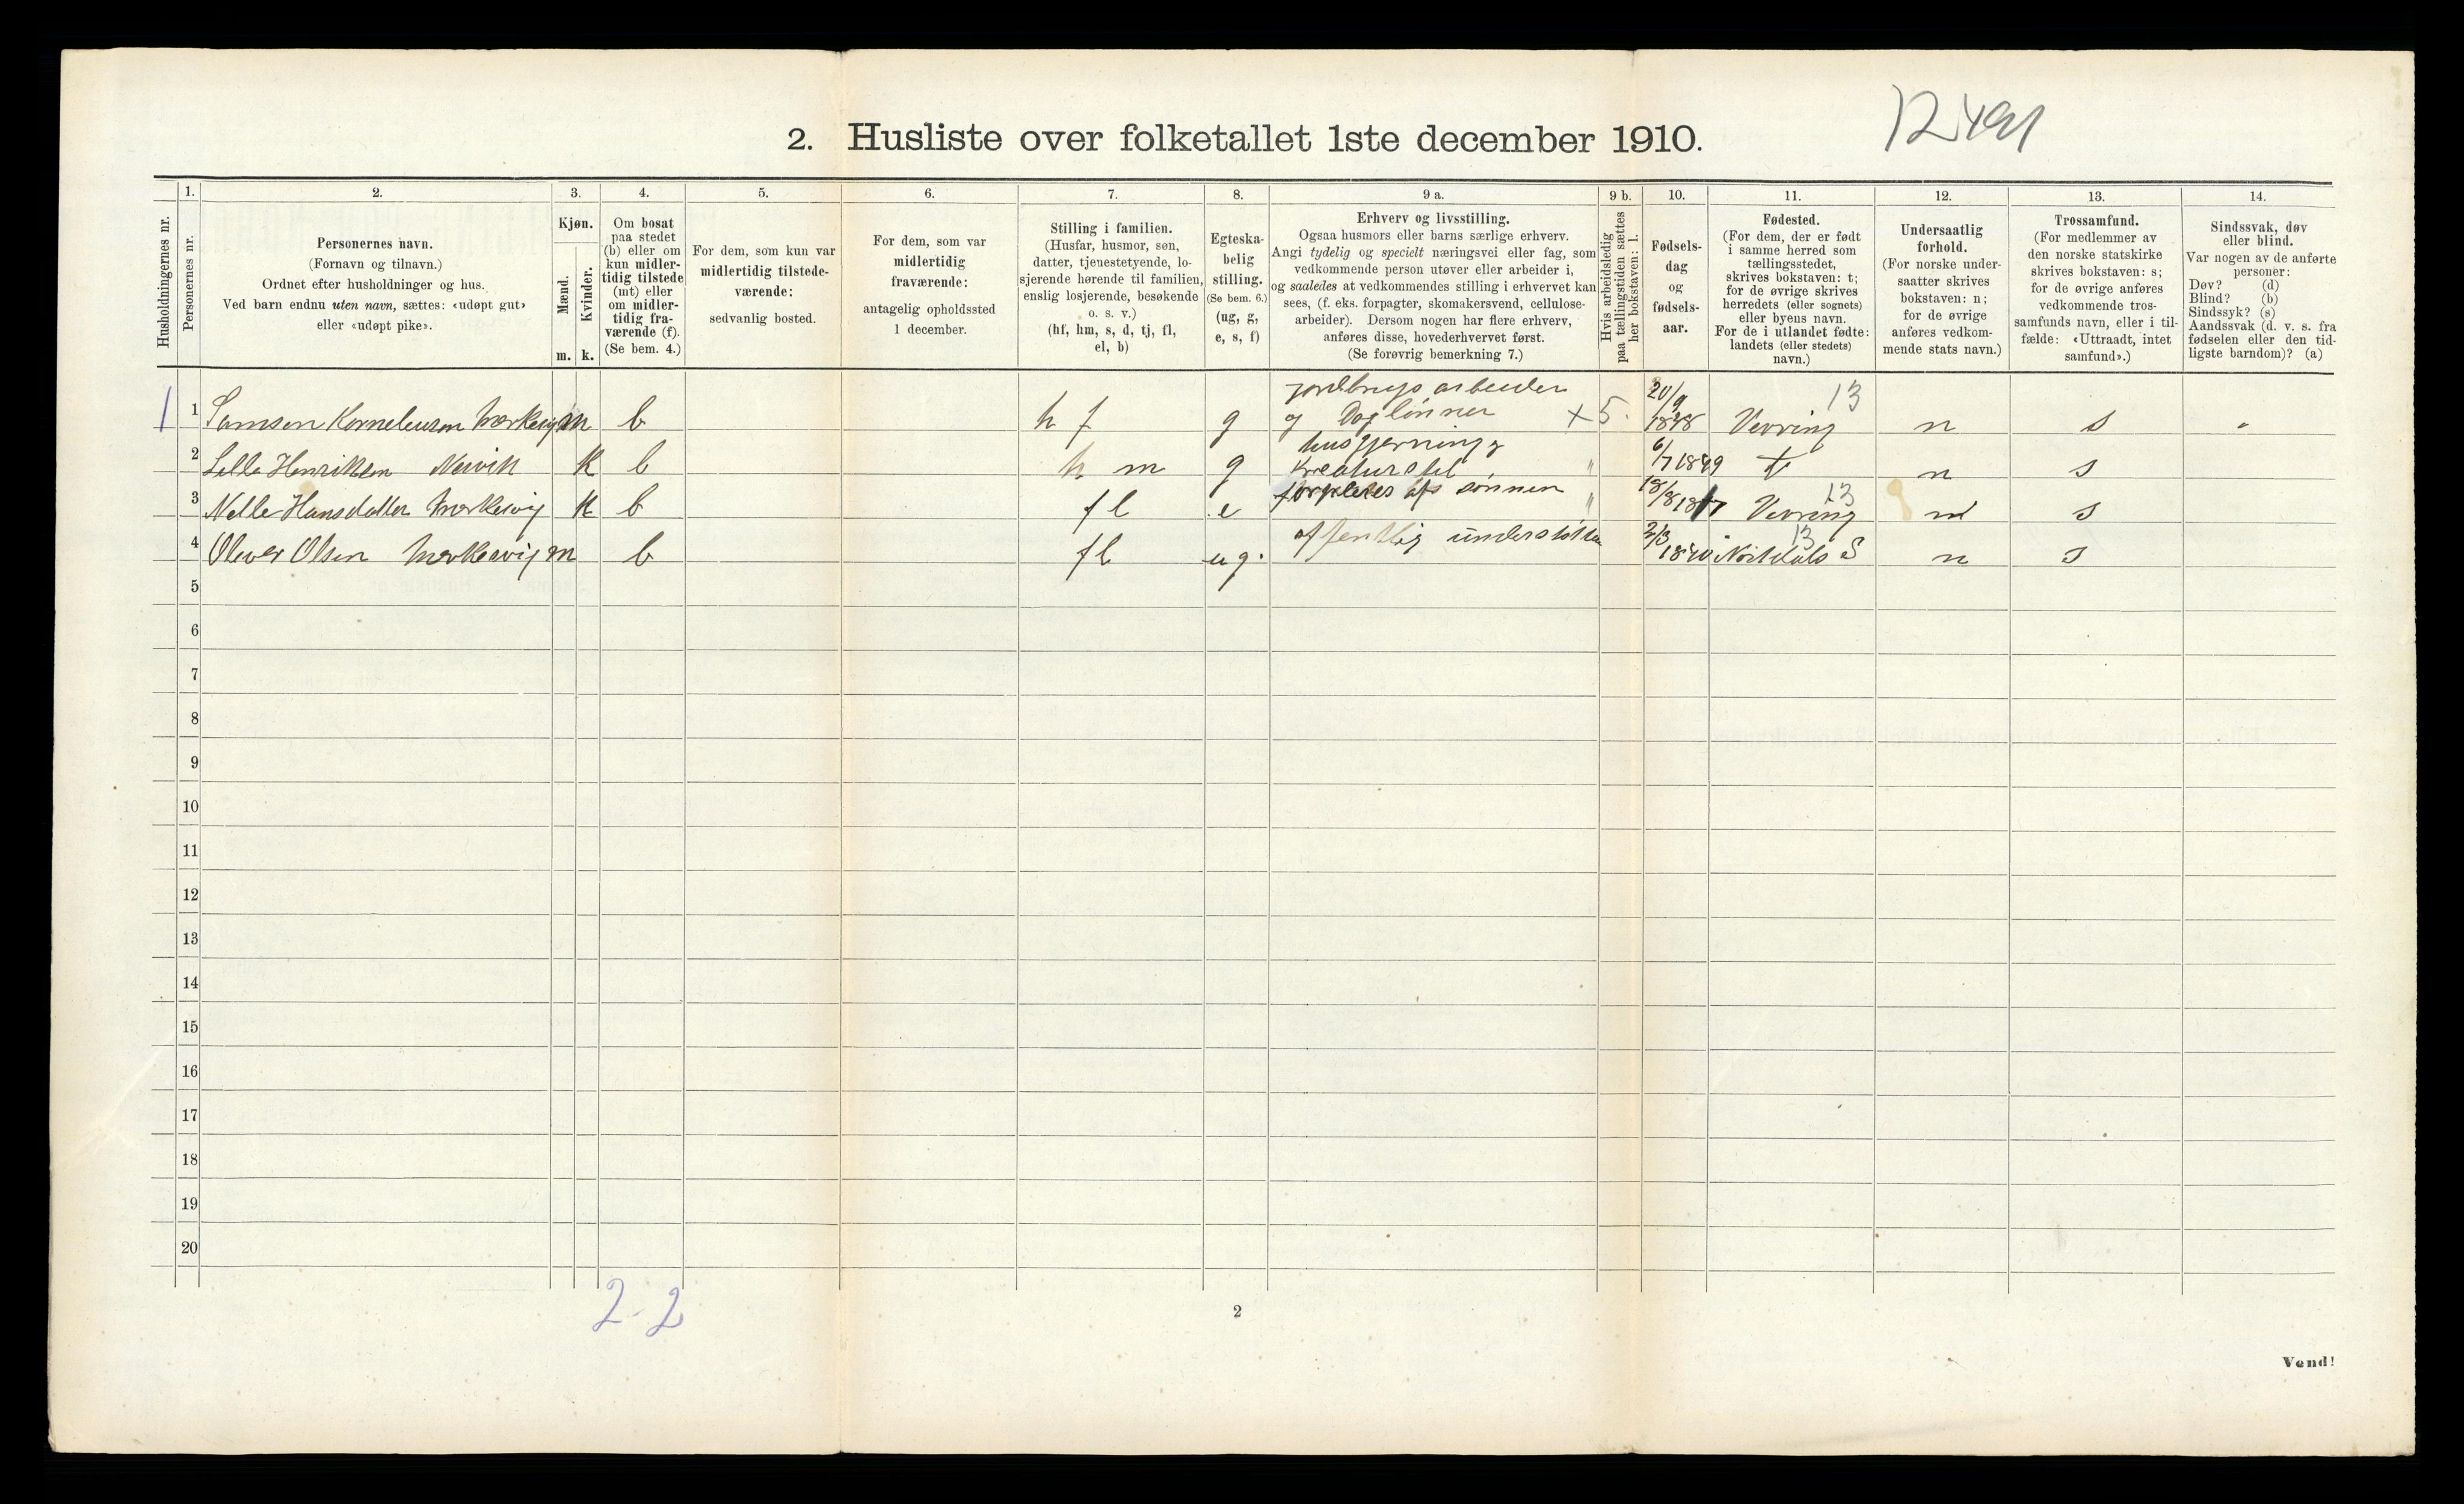 12491
2. Husliste over folketallet 1ste december 1910.
Husholdningernes nr.
1.
Personernes nr.
2.
Personernes navn.
(Fornavn og tilnavn.)
Ordnet efter husholdninger og hus.
Ved barn endnu uten navn, sættes: «udøpt gut»
eller «udøpt pike».
3.
Kjøn.
Mænd.
Kvinder.
m. k.
4.
Om bosat
paa stedet
(b) eller om
kun midler-
tidig tilstede
(mt) eller
om midler-
tidig fra-
værende (f).
(Se bem. 4.)
5.
For dem, som kun var
midlertidig tilstede-
værende:
sedvanlig bosted.
6.
For dem, som var
midlertidig
fraværende:
antagelig opholdssted
1 december.
7.
Stilling i familien.
(Husfar, husmor, søn,
datter, tjenestetyende, lo-
sjerende hørende til familien,
enslig losjerende, besøkende
o. s. v.)
(hf, hm, s, d, tj, fl,
el, b)
8.
Egteska-
belig
stilling.
(Se bem. 6.)
(ug, g,
e, s, f)
9 a.
Erhverv og livsstilling.
Ogsaa husmors eller barns særlige erhverv.
Angi tydelig og specielt næringsvei eller fag, som
vedkommende person utøver eller arbeider i,
og saaledes at vedkommendes stilling i erhvervet kan
sees, (f. eks. forpagter, skomakersvend, cellulose-
arbeider). Dersom nogen har flere erhverv,
anføres disse, hovederhvervet først.
(Se forøvrig bemerkning 7.)
9 b.
Hvis arbeidsledig
paa tællingstiden sættes
her bokstaven: l.
10.
Fødsels-
dag
og
fødsels-
aar.
11.
Fødested.
(For dem, der er født
i samme herred som
tællingsstedet,
skrives bokstaven: t;
for de øvrige skrives
herredets (eller sognets)
eller byens navn.
For de i utlandet fødte:
landets (eller stedets)
navn.)
12.
Undersaatlig
forhold.
(For norske under-
saatter skrives
bokstaven: n;
for de øvrige
anføres vedkom-
mende stats navn.)
13.
Trossamfund.
(For medlemmer av
den norske statskirke
skrives bokstaven: s;
for de øvrige anføres
vedkommende tros-
samfunds navn, eller i til-
fælde: «Uttraadt, intet
samfund».)
14.
Sindssvak, døv
eller blind.
Var nogen av de anførte
personer:
Døv? (d)
Blind? (b)
Sindssyk? (s)
Aandssvak (d. v. s. fra
fødselen eller den tid-
ligste barndom)? (a)
jordbrugs arbeider 20/9 13
1 1 Samson Korneleusen m b h f g og Daglønner x 5. 1848 Vevring n s "
husgjerning og 6/7
2 Henriksen K b h m g Kreaturstel " 1849 t n s
forsørges af sønnen 18/8 13
3 Hansdatter K b f l e " 1817 Vevring n s
offentlig 2/3 13
4 Oliver Olsen m b f l ug. 1840 n s
5
6
7
8
9
10
11
12
13
14
15
16
17
18
19
20
2-2
2
Vend!